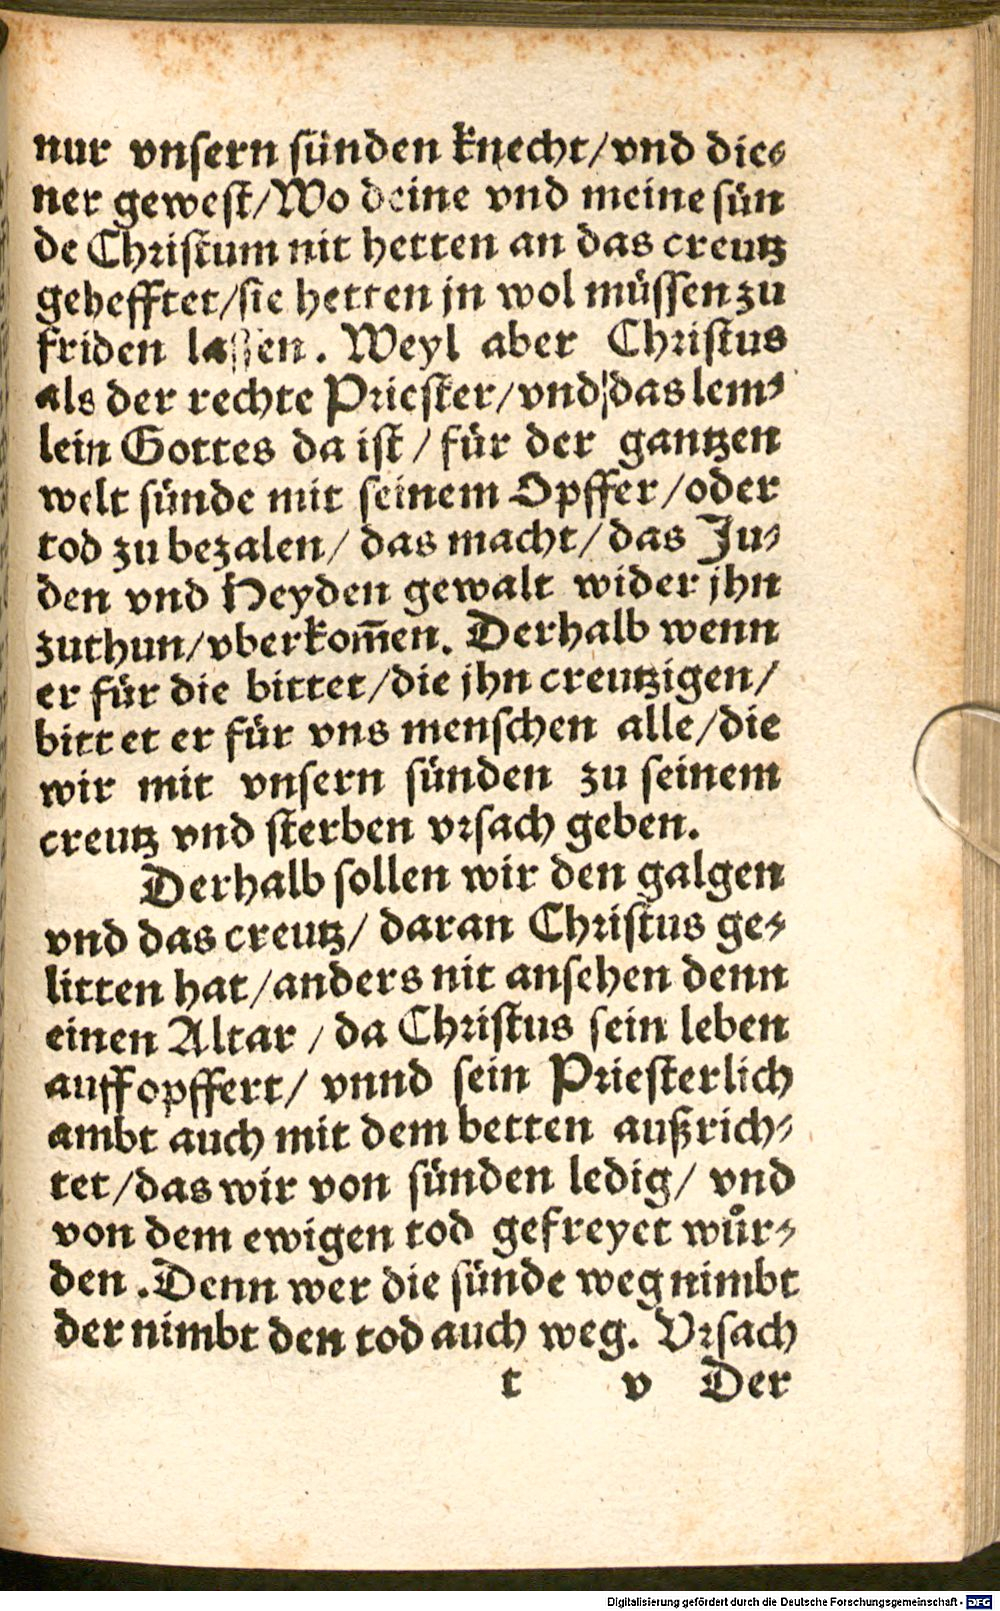 nur vnsern sünden knecht/vnd die⸗
ner gewest/Wo deine vnd meine sün
de Christum nit hetten an das creutz
gehefftet/sie hetten jn wol müssen zu
friden lassen. Weyl aber Christus
als der rechte Priester/vnd das lem⸗
lein Gottes da ist/für der gantzen
welt sünde mit seinem Opffer/oder
tod zu bezalen/das macht/das Ju⸗
den vnd Heyden gewalt wider jhn
zuthun/vberkom̃en. Derhalb wenn
er für die bittet/die jhn creutzigen/
bittet er für vns menschen alle/die
wir mit vnsern sünden zu seinem
creutz vnd sterben vrsach geben.
Derhalb sollen wir den galgen
vnd das creutz/daran Christus ge⸗
litten hat/anders nit ansehen denn
einen Altar/da Christus sein leben
auffopffert/vnnd sein Priesterlich
ambt auch mit dem betten außrich⸗
tet/das wir von sünden ledig/vnd
von dem ewigen tod gefreyet wůr⸗
den.Denn wer die sünde weg nimbt
der nimbt den tod auch weg. Vrsach
t v Der
Digitalisierung gefördert durch die Deutsche Forschungsgemeinschaft - DFG